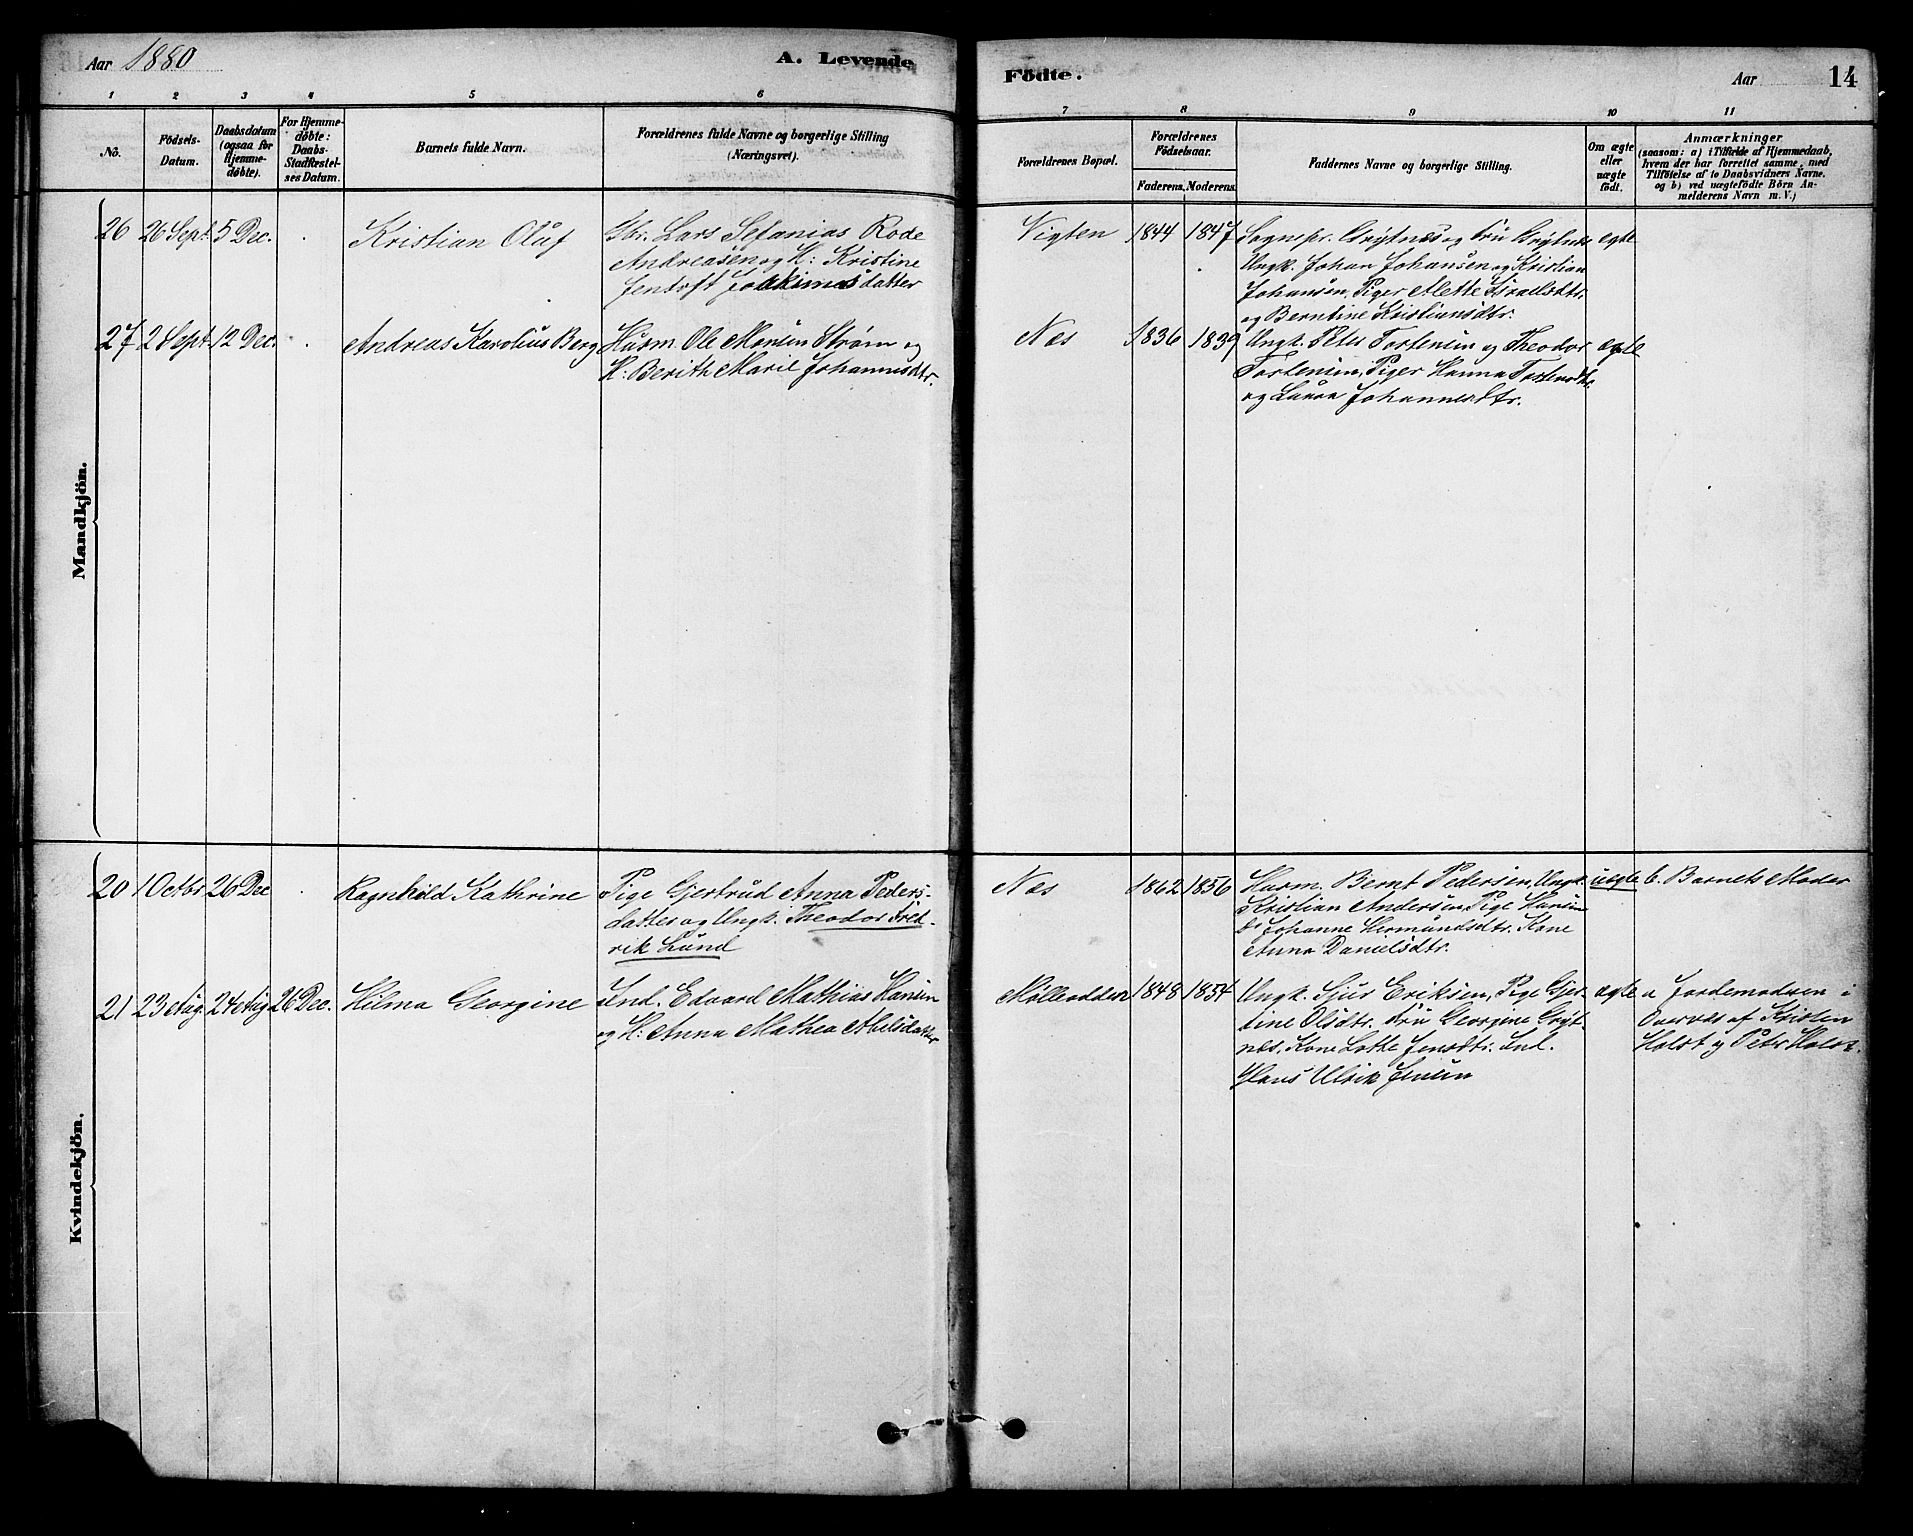 Aar 1880
A. Levende
Födte.
Aar
14
1 2 3 4 5 6 7 8 9 10 11
No.
Födsels-
Datum.
Daabsdatum
(ogsaa for
Hjemme-
døbte).
For Hjemme-
døbte:
Daabs-
Stadfæstel-
ses Datum.
Barnets fulde Navn.
Forældrenes fulde Navne og borgerlige Stilling
(Næringsvei).
Forældrenes Bopæl.
Forældrenes
Födselsaar.
Faderens. Moderens.
Faddernes Navne og borgerlige Stilling.
Om ægte
eller
uægte
födt.
Anmærkninger
(saasom: a) i Tilfælde af Hjemmedaab,
hvem der har forrettet samme, med
Tilföielse af to Daabsvidners Navne.
og b) ved uægtefödte Börn An-
melderens Navn m. V.)
Mandkjön.
26 26 Sept. 5 Dec.
Kristian Oluf
Lars Sefanias Rode
Andreasen og H: Kristine
Jentoft Joakimsdatter
Vigten 1844 1847
Sognepr. Grÿtnes og Fru Grÿtnes
Ungk. Johan Johansen og Kristian
Johansen, Piger Mette
og Berntine Kristiansdtr.
egte
27 2 Sept. 12 Dec.
Andreas Karolius Berg
Husm. Ole Martin Strøm og
H: Berith Marie Johannesdtr.
Nes 1836 1839
Ungk. Peter Tostensen og Theodor
Tostensen, Piger Hanna Tostensdtr.
og Laura Johannesdtr.
egte
Kvindekjön.
20 1 Octbr 26 Dec
Ragnhild Kathrine
Pige Gjertrud Anna Peders-
datter og Ungk. Theodor Fred-
rik Lund
Nes 1862 1856
Husm. Bernt Pedersen, Ungk.
Kristian Andersen, Pige
Johanne Hermundsdtr. Kone
Anna Danielsdtr.
uegte
b. Barnets Moder
21 23 Aug. 24 Aug 26 Dec.
Hilma Georgine
Ind. Edvard Mathias Hansen
og H: Anna Mathea Abelsdatter
Mølleodden 1848 1854
Ungk. Sjur Eriksen, Pige Gjer-
tine Olsdtr. Fru Georgine Grÿt-
nes, Kone Lotte Jensdtr. Ind.
Hans Ulrik Jensen
egte
a Jordemoderen i
Overvær af Kristen
Holst og Peter Holst.